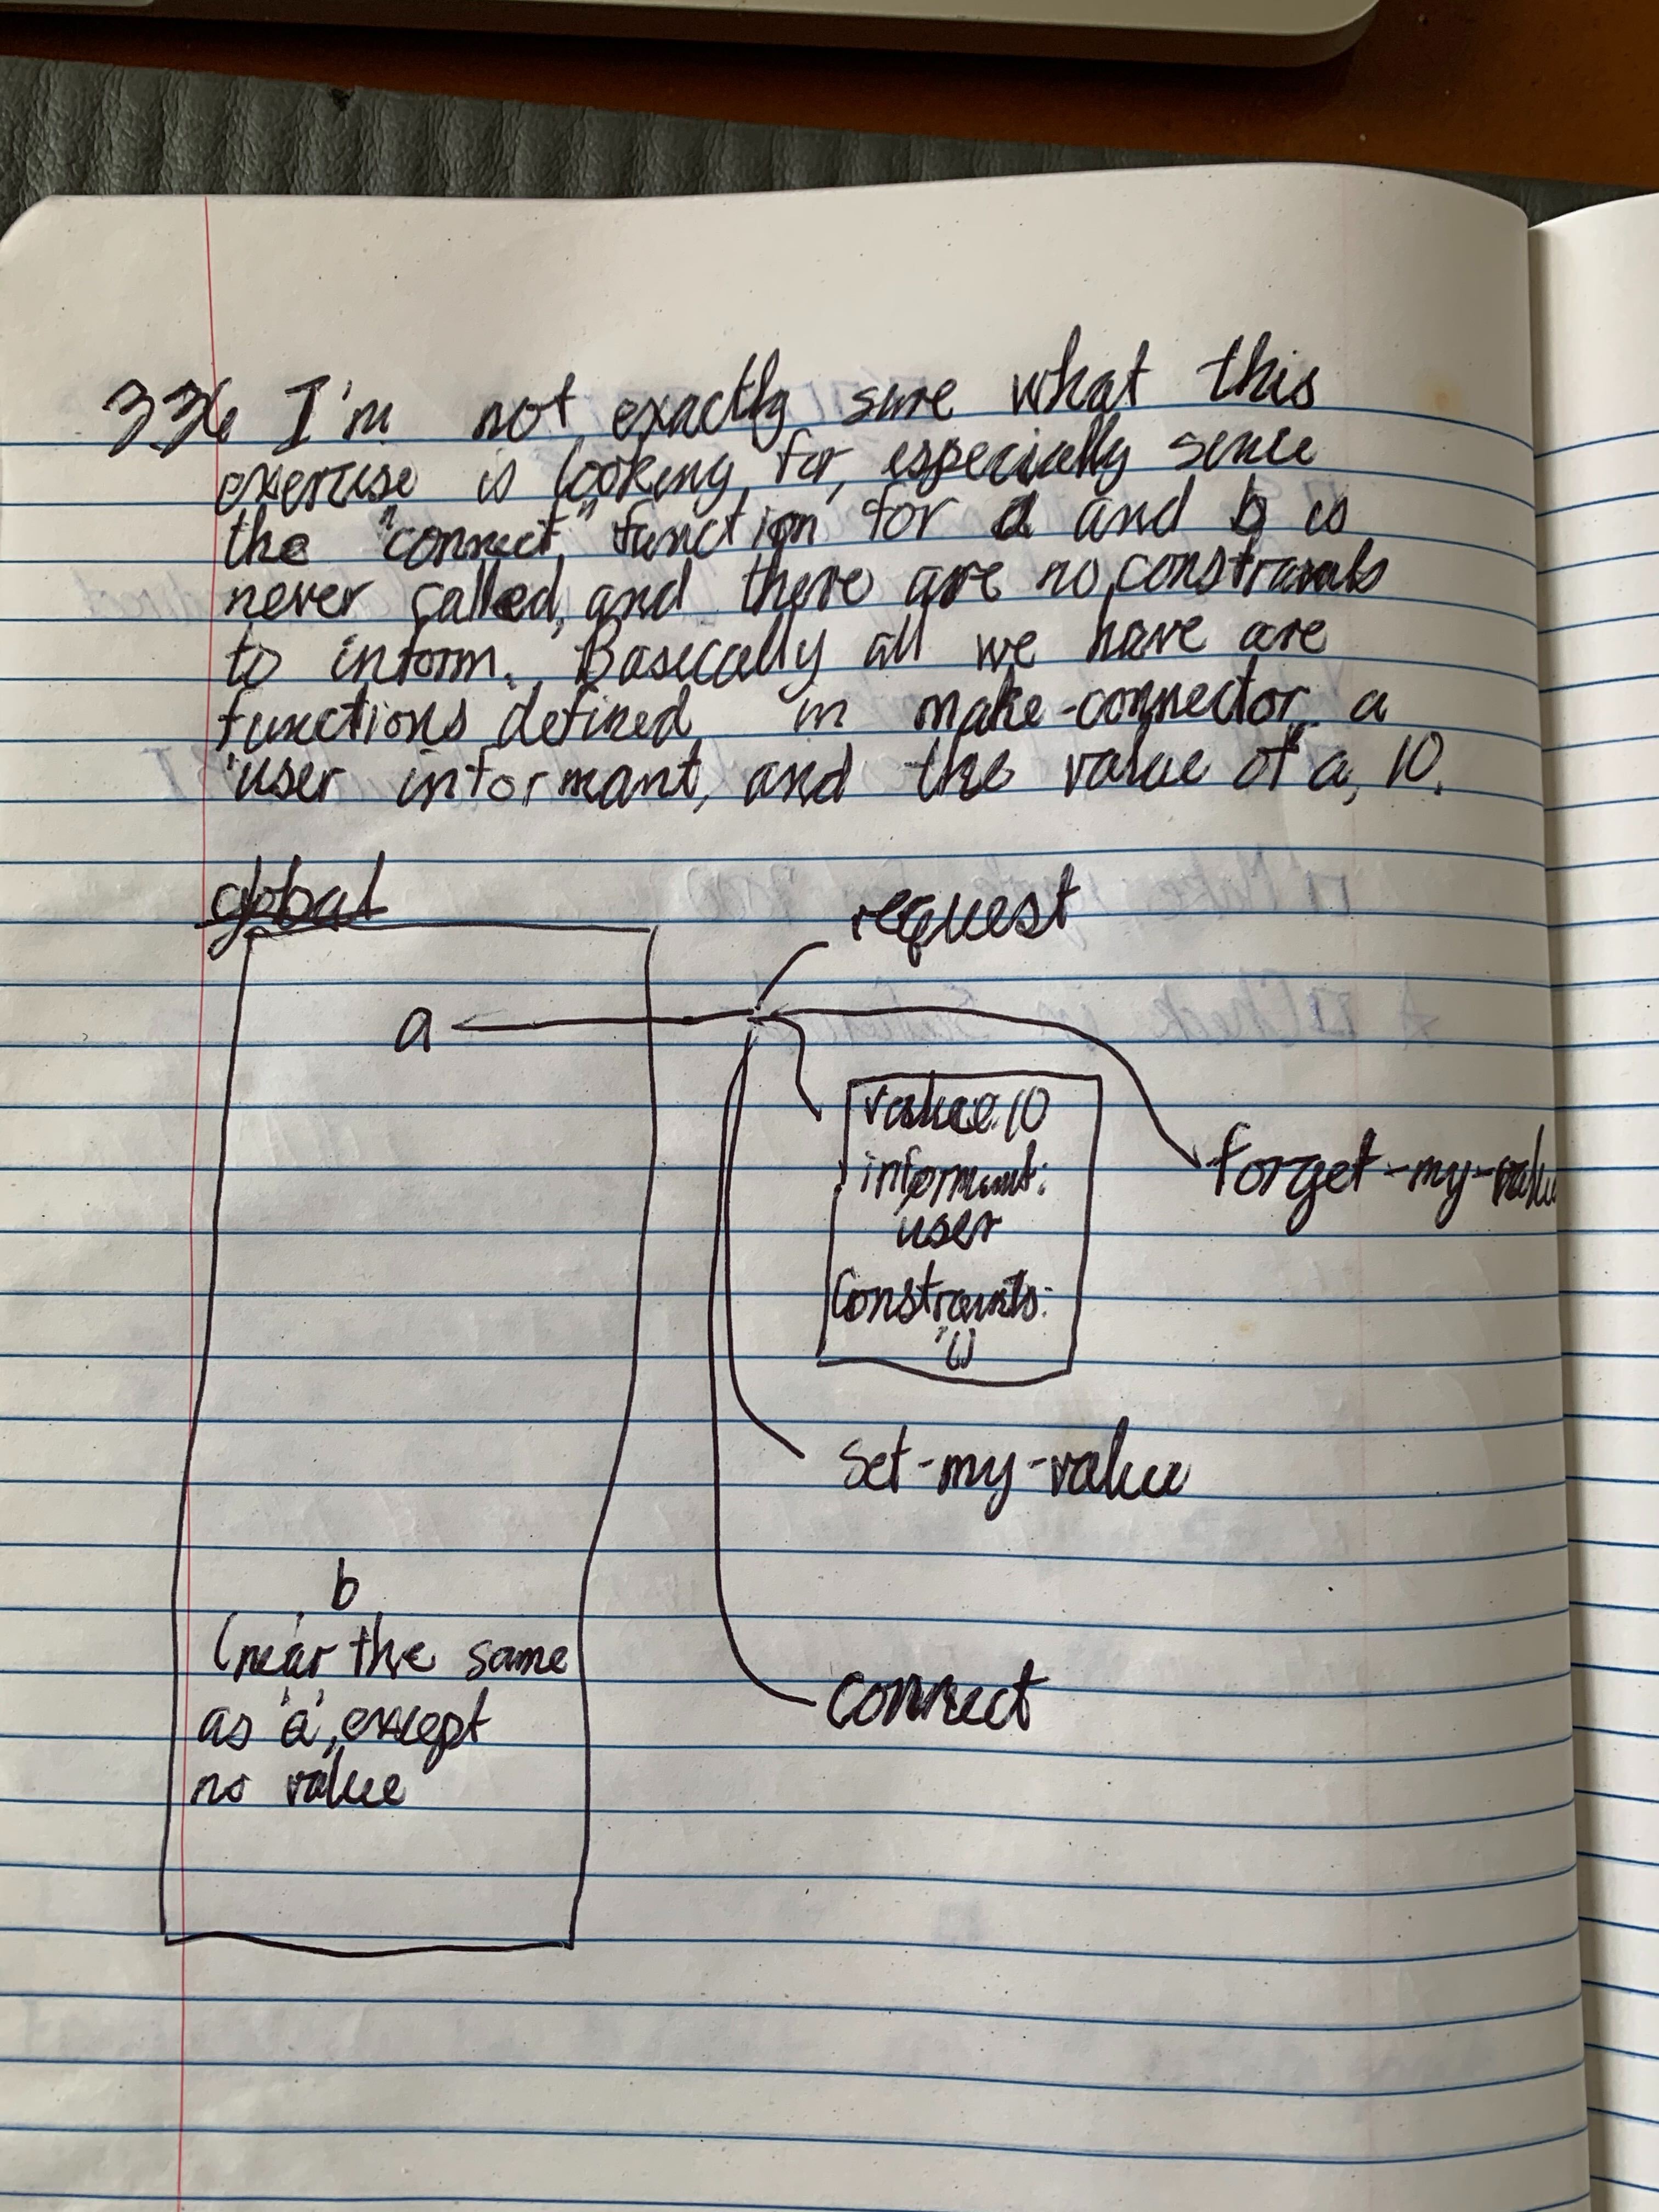 3.36 I'm not exactly sure what this
exercise is looking for, especially since
the "connect" function for a and b is
never called, and there are no constraints
to inform. Basically all we have are
functions defined in make-connector, a
'user informant, and the value of a, 10.
global
request
a
value: 10
informant:
user
constraints:
'()
forget-my-value
set-my-value
b
(near the same
as 'a', except
no value
connect